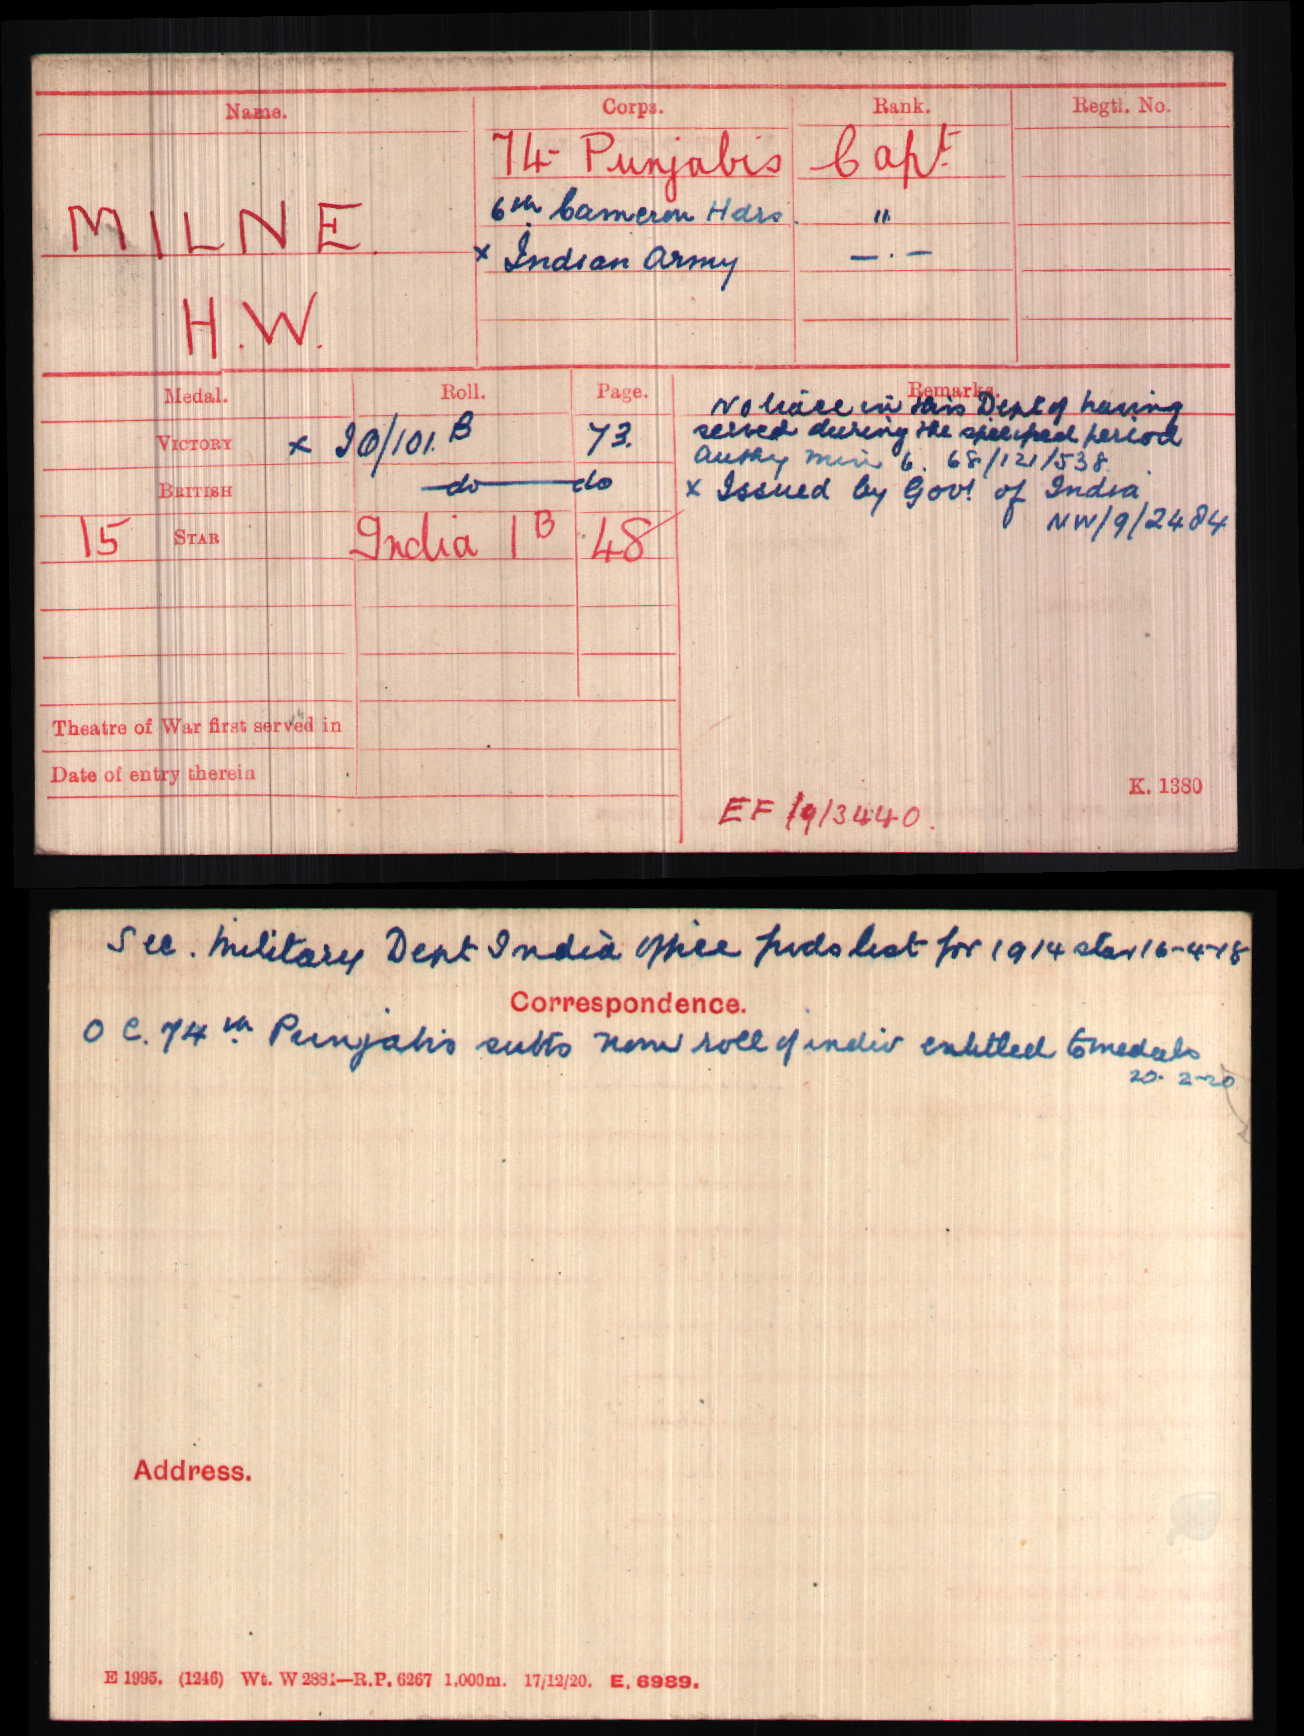 Name.
Corps.
Rank.
Regtl. No.
74 Punjabis Capt
MILNE.
6th Cameron Hdrs. "
x Indian Army — . —
H.W.
Medal.
Roll.
Page.
Remarks.
No trace in this Dept of having
served during the specified period
Authy Min 6. 68/121/538
x Issued by Govt of India
NW/9/2484
VICTORY x IO/101 B 73.
BRITISH —do— do
15 STAR India 1 B 48
Theatre of War first served in
Date of entry therein
K. 1380
EF/9/3440.
Sec. Military Dept India Office fwds list for 1914 star 16-4-18
Correspondence.
O C. 74th Punjabis subts nom roll of indiv entitled to medals
20. 2-20
Address.
E 1995. (1246) Wt. W 2881—R.P. 6267 1,000m. 17/12/20. E. 6989.